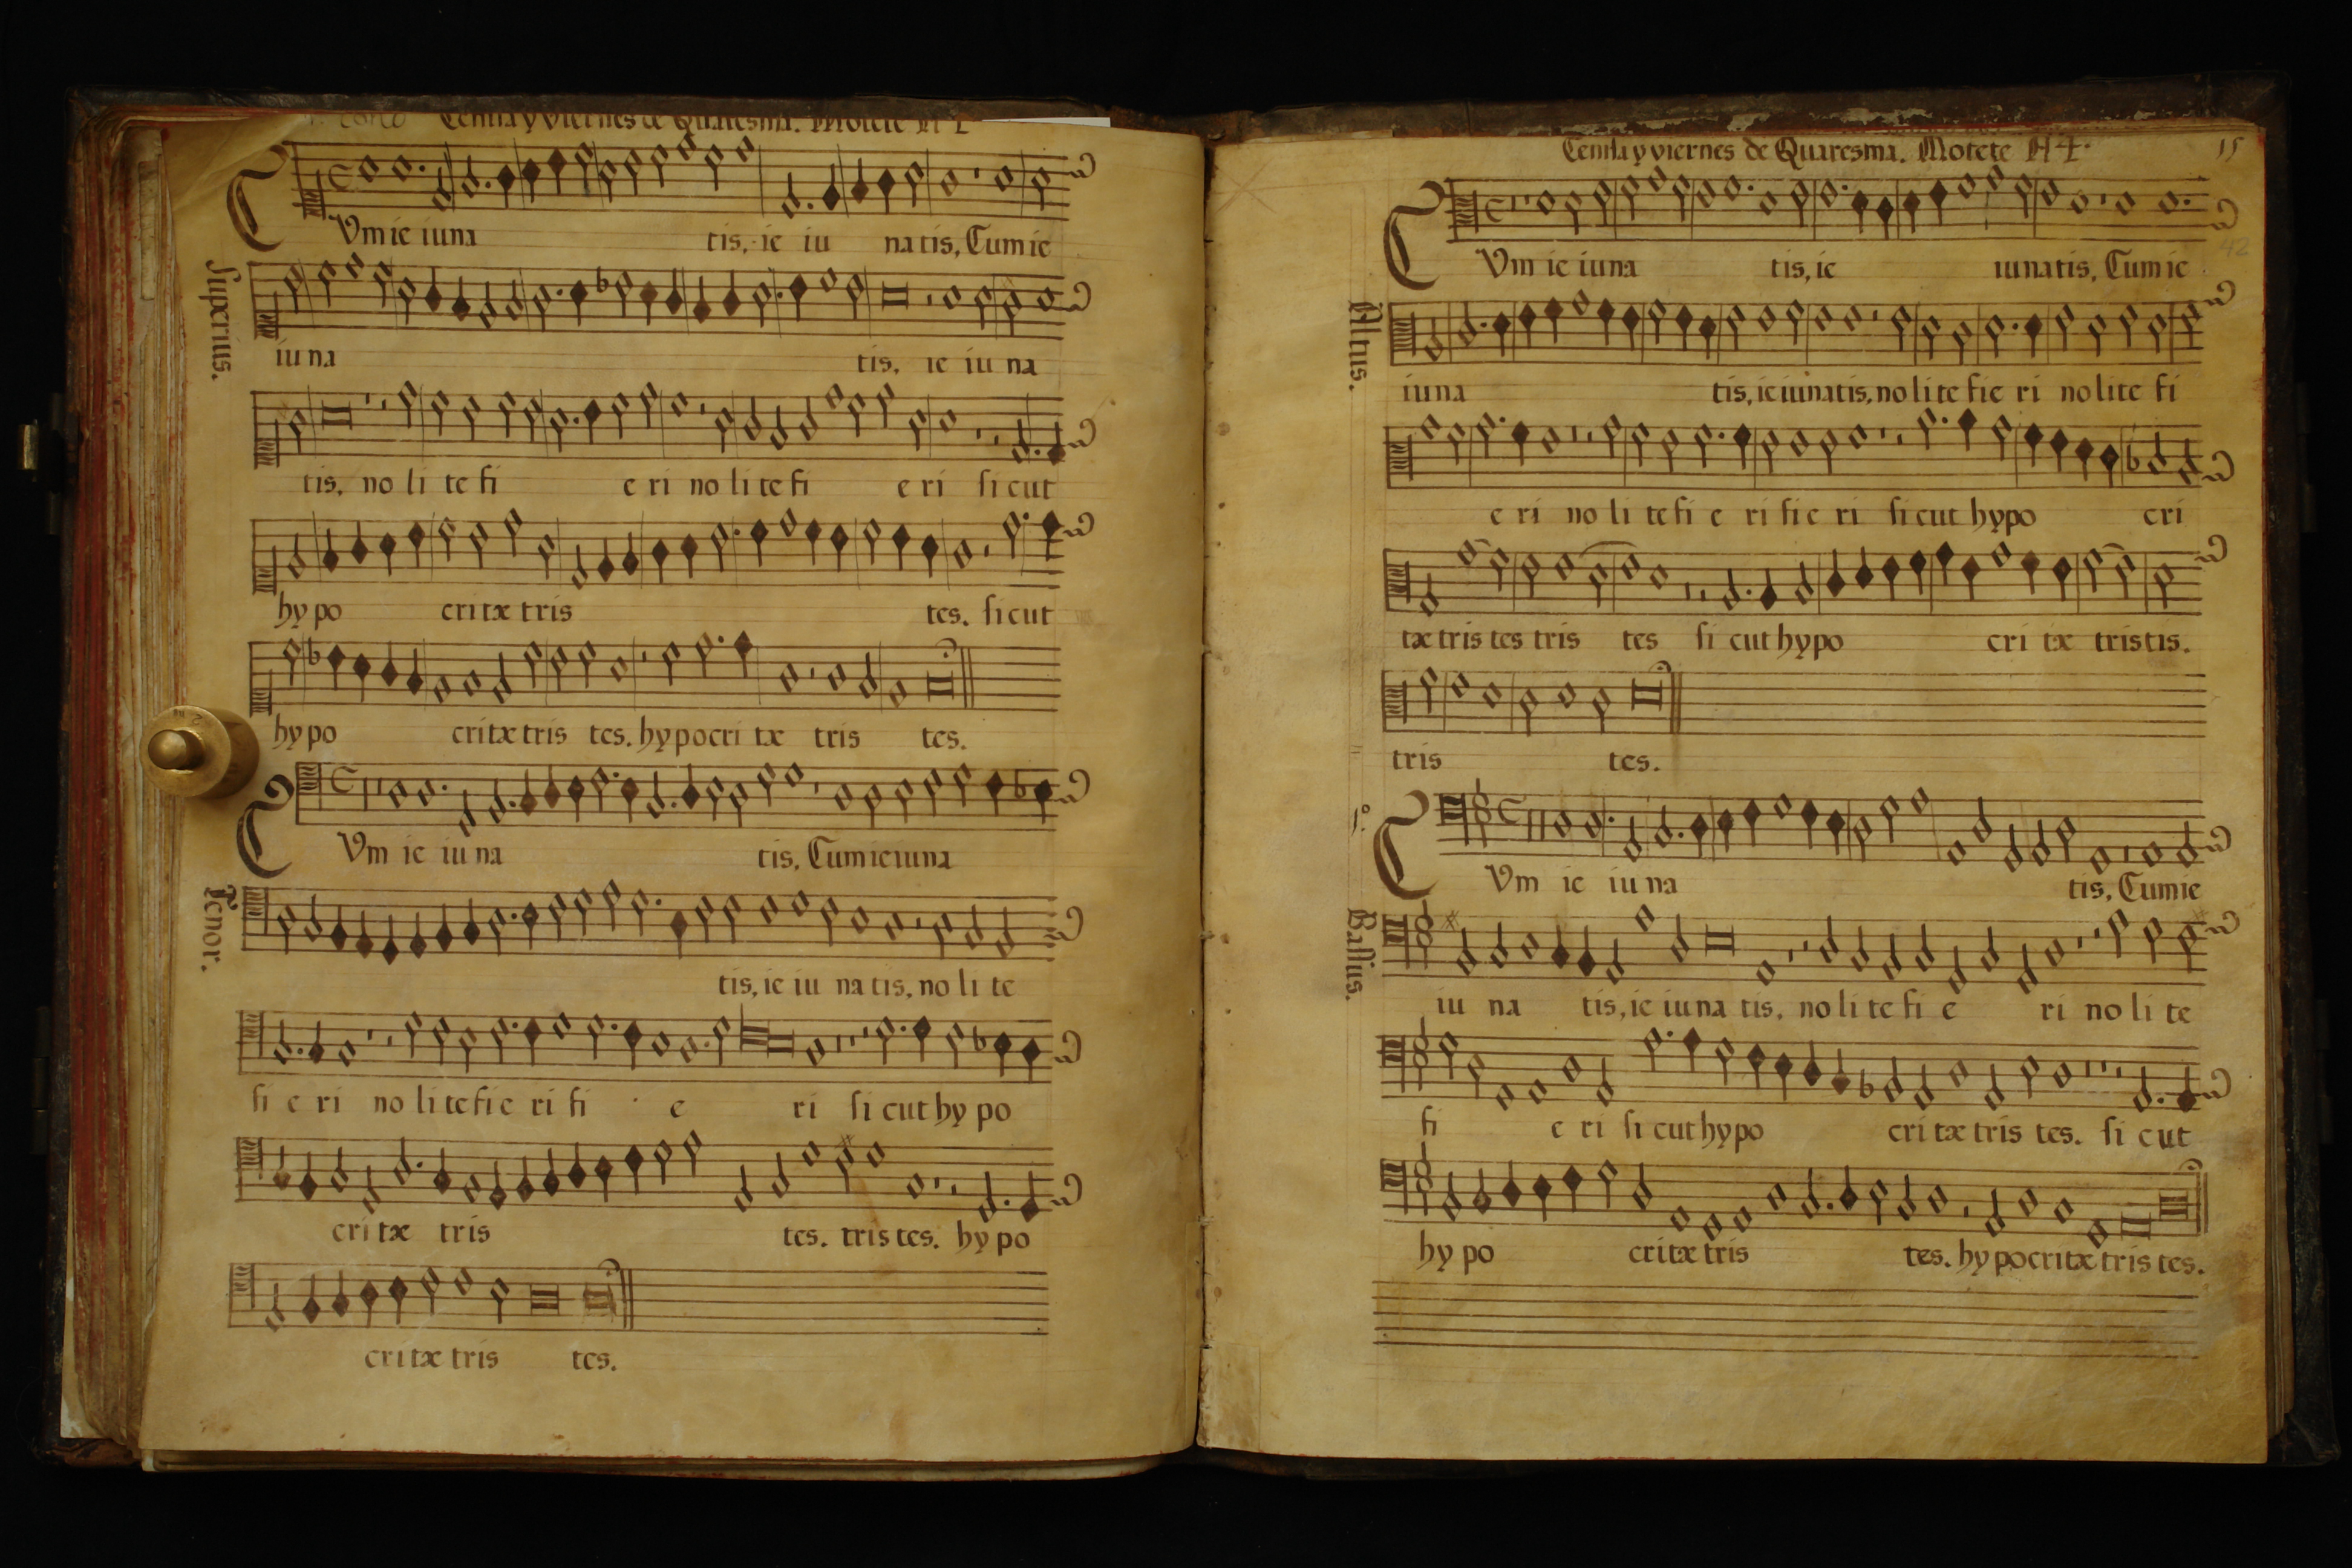 Ceniza y viernes de Quaresma. Motete A 4
CVm ie iuna tis, ie iu na tis, Cum ie
Superius.
iu na tis, ie iu na
tis, no li te fi e ri no li te fi e ri sicut
hy po critæ tris tes. sicut
hy po critæ tris tes. hypocri tæ tris tes.
CVm ie iu na tis, Cum ieiuna
Tenor.
tis, ie iu na tis, no li te
fi e ri no li te fi e ri fi e ri si cut hy po
cri tæ tris tes. tristes. hy po
critæ tris tes.
Ceniza y viernes de Quaresma. Motete A 4.
15
42
CVm ie iuna tis, ie iunatis, Cum ie
Altus.
iuna tis, ieiunatis, no li te fie ri no lite fi
e ri no li te fi e ri fi e ri sicut hypo cri
tæ tris tes tris tes si cut hypo cri tæ tristis.
tris tes.
CVm ie iu na tis, Cum ie
Bassus.
iu na tis, ie iuna tis, no li te fi e ri no li te
fi e ri si cut hypo cri tæ tris tes. si cut
hy po critæ tris tes. hy pocritæ tris tes.